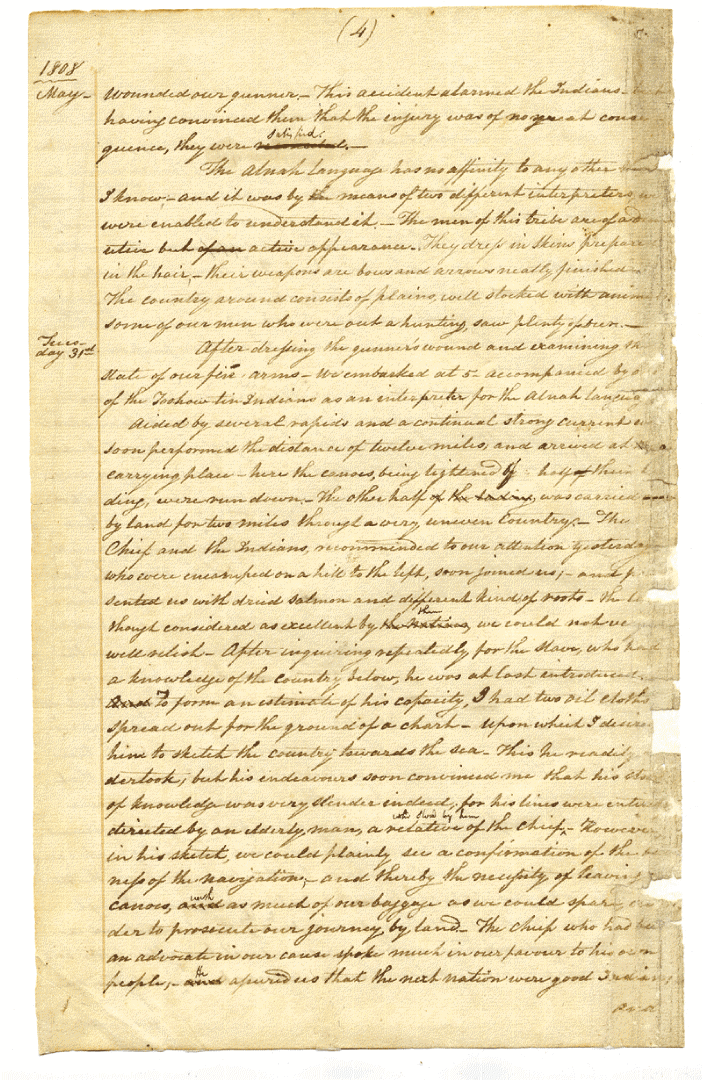 (4)
1808
May-
wounded our gunner.- This accident alarmed the Indians-
having convinced them that the injury was of no great conse
quence, they were satisfied.-
The Atnah Language has no affinity to any other
I know:- and it was by the means of two different interpreters,
were enabled to understand it.- The men of this tribe are of a
utive but of an active appearance. They dress in skins prepared
in the hair,- their weapons are bows and arrows neatly finished-
The country around consists of plains, well stocked with anim
some of our men who were out a hunting, saw plenty of
Tues-
day 31st
After dressing the gunner's wound and examining the
state of our fire arms- We embarked at 5- accompanied by
of the Toohowtin Indians as an interpreter for the Atnah language
Aided by several rapids and a continual strong current
soon performed the distance of twelve miles, and arrived at
carrying place- here the canoes, being lightened of half of their
ding, were run down.- The other half of the lading, was carried
by land for two miles through a very uneven Country.- The
Chief and the Indians, recommended to our attention yesterday
who were encamped on a hill to the left, soon joined us;- and pre
sented us with dried salmon and different kind of roots- the
though considered as excellent by the Natives, them we could not
well relish- After inquiring repeatedly for the slave, who had
a knowledge of the country below, he was at last introduced.
And To form an estimate of his capacity, I had two oil cloths
spread out for the ground of a chart- upon which I desired
him to sketch the country towards the sea- This he readily
dertook; but his endeavours soon convinced me that his stock
of knowledge was very slender indeed; for his lines were entirely
directed by an elderly man, a relative of the chief, who stood by him- However
in his sketch, we could plainly see a confirmation of the
ness of the navigation,- and thereby the necessity of leaving
canoes, and with as much of our baggage as we could spare,
der to prosecute our journey by land- The chief who had
an advocate in our cause spoke much in our favour to his own
people,- and He assured us that the next nation were good Indians